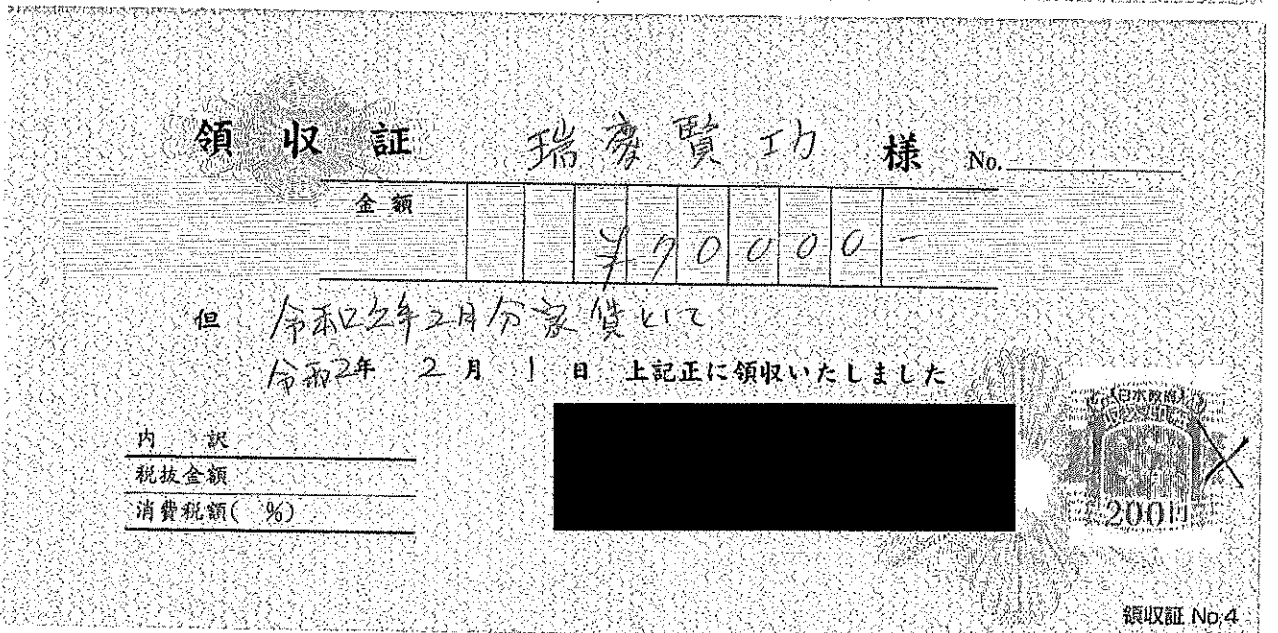 領収証 瑞慶賢功 様 No.
金額 ¥70000-
但 令和2年2月分家賃として
令和2年 2月 1日 上記正に領収いたしました
内訳
税抜金額
消費税額( %)
200円
領収証 No.4